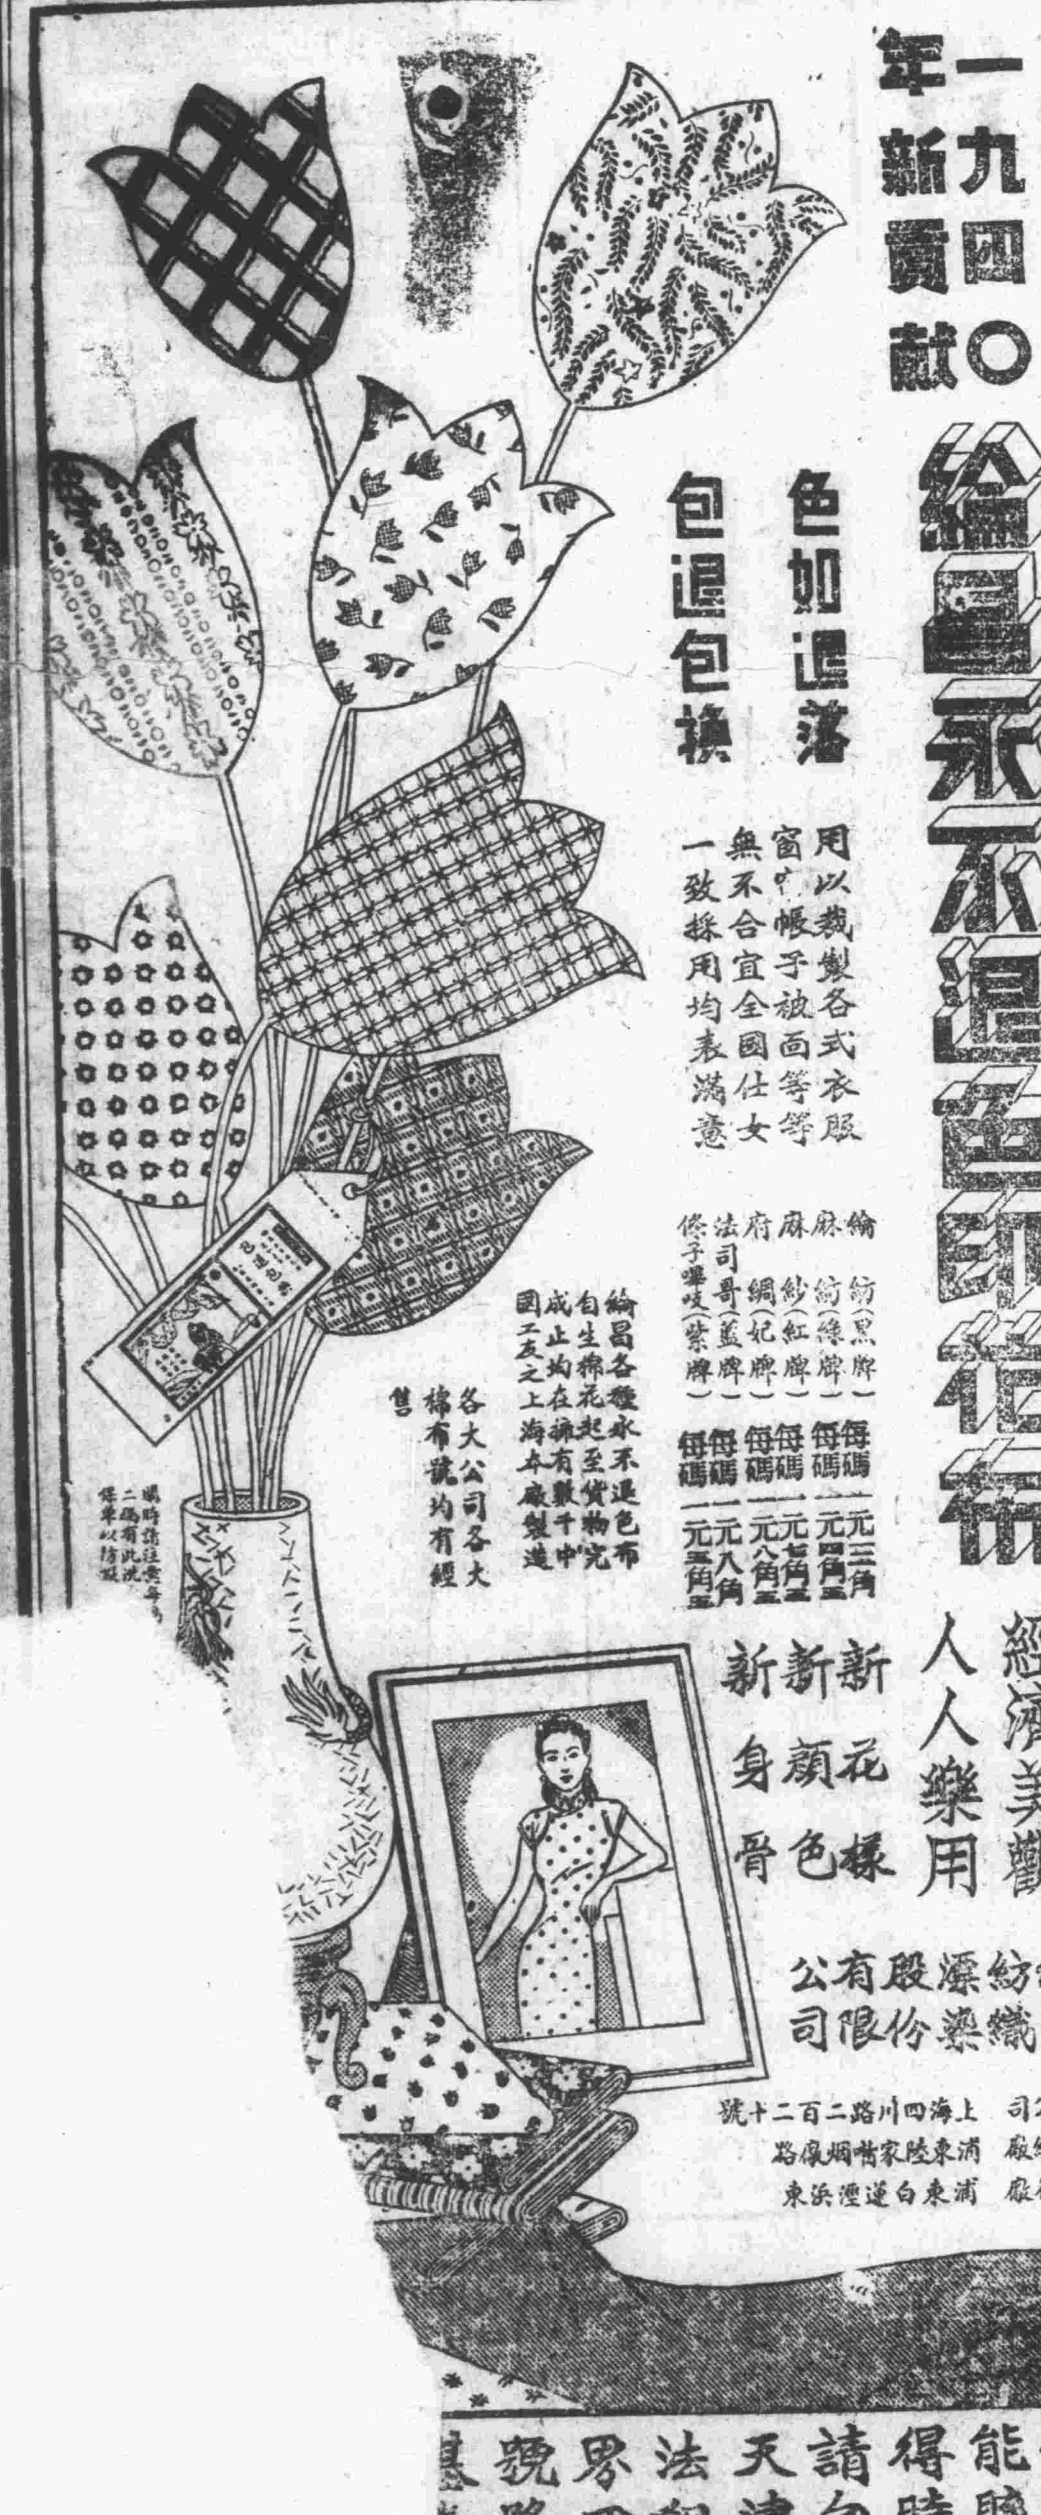 一九四〇
年新貢献
綸昌永不退色印花布
色如退落
包退包換
用以裁製各式衣服
窗帘帳子被面等等
無不合宜全國仕女
一致採用均表滿意
綸紡(黑牌)每碼一元二角
麻紡(綠牌)每碼一元四角五
麻紗(紅牌)每碼一元七角五
府綢(妃牌)每碼一元八角五
法司哥(藍牌)每碼一元八角
條子嗶吱(紫牌)每碼一元五角五
綸昌各種永不退色布
自生棉花起至貨物完
成止均在擁有數千中
國工友之上海本廠製造
各大公司各大
棉布號均有經
售
包退包換
購時請注意每碼
二碼有此洗
保單以防假
經濟美觀
人人樂用
新花樣
新顏色
新身骨
紡織
漂染
股份
有限
公司
上海四川路二百二十號
浦東陸家嘴烟廠路
浦東白蓮涇浜東
能
得
請
天
法
界
號